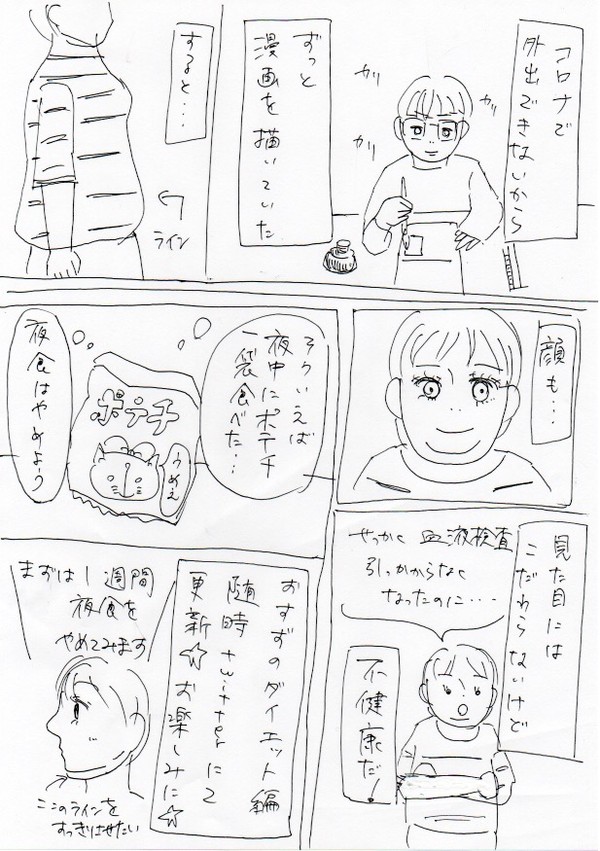 コロナで
外出できないから
ずっと
漫画を描いていた
カリ
カリ
カリ
すると…
ライン
顔も…
見た目には
こだわらないけど
せっかく血液検査
引っかからなく
なったのに・・・・
不健康だ!
そういえば
夜中にポテチ
一袋食べた…
ポテチ
うめえ
夜食はやめよう
おすずのダイエット編
随時twitterにて
更新☆お楽しみに☆
まずは1週間
夜食を
やめてみます
ここのラインを
すっきりさせたい